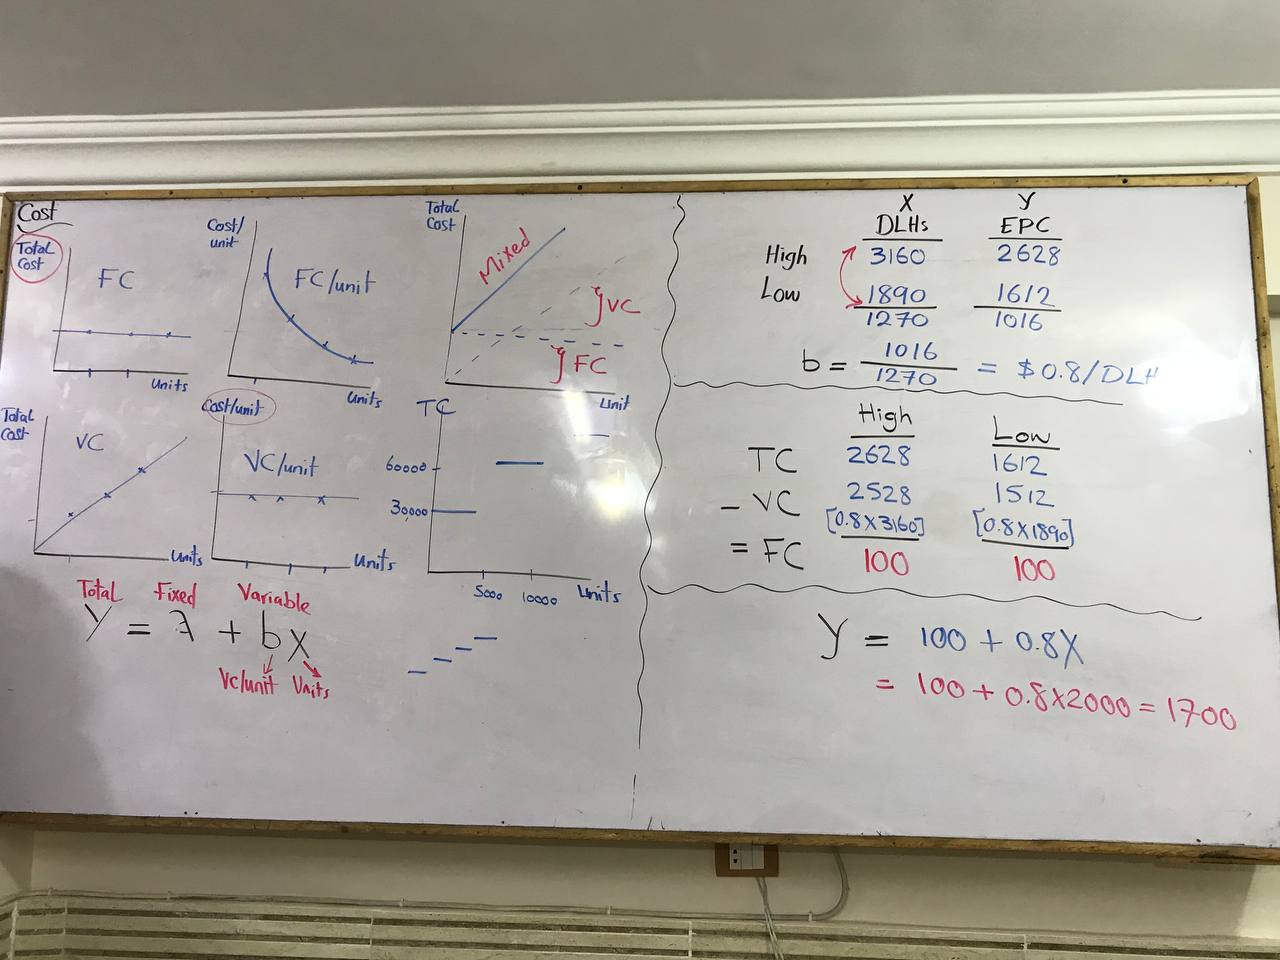 Cost
Total
Cost
FC
Units
Cost/
unit
FC/unit
Units
Total
Cost
Mixed
VC
FC
Unit
Total
Cost
VC
Units
Cost/unit
VC/unit
Units
TC
60000
30000
5000 10000 Units
Total Fixed Variable
y = a + bx
Vc/unit Units
X y
DLHs EPC
High 3160 2628
Low 1890 1612
1270 1016
b = 1016/1270 = $0.8/DLH
High Low
TC 2628 1612
- VC 2528 1512
[0.8X3160] [0.8X1890]
= FC 100 100
y = 100 + 0.8X
= 100 + 0.8X2000 = 1700